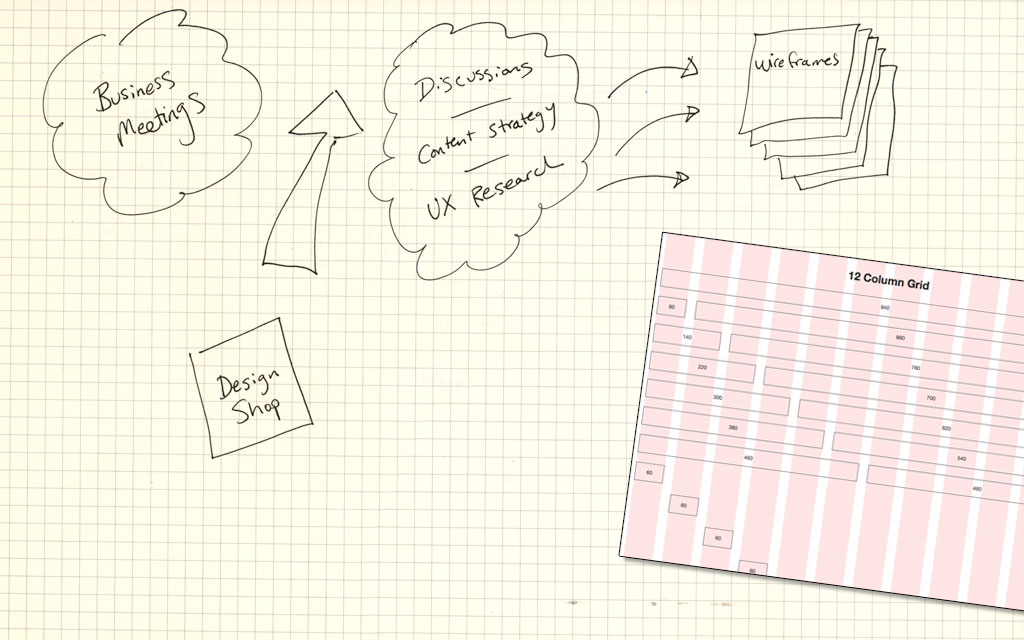 Business
Meetings
Discussions
Content Strategy
UX Research
wireframes
Design
Shop
12 Column Grid
940
60
860
140
780
220
700
300
620
380
540
460
460
60
60
60
60